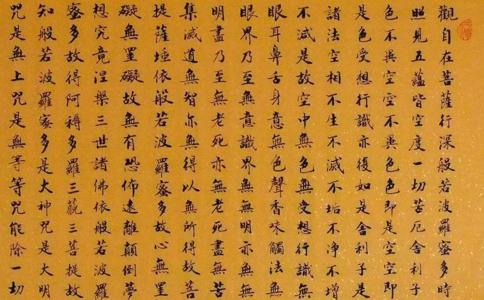 觀自在菩薩行深般若波羅蜜多時
照見五蘊皆空度一切苦厄舍利子
色不異空空不異色色即是空空即
是色受想行識亦復如是舍利子是
諸法空相不生不滅不垢不淨不增
不減是故空中無色無受想行識無
眼耳鼻舌身意無色聲香味觸法無
眼界乃至無意識界無無明亦無無
明盡乃至無老死亦無老死盡無苦
集滅道無智亦無得以無所得故菩
提薩埵依般若波羅蜜多故心無罣
礙無罣礙故無有恐怖遠離顛倒夢
想究竟涅槃三世諸佛依般若波羅
蜜多故得阿耨多羅三藐三菩提故
知般若波羅蜜多是大神咒是大明
咒是無上咒是無等等咒能除一切